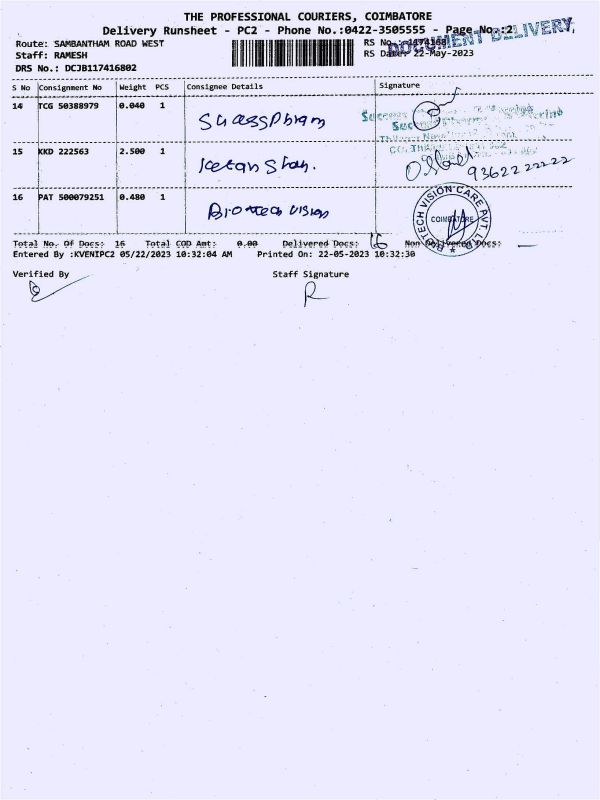 THE PROFESSIONAL COURIERS, COIMBATORE
Delivery Runsheet - PC2 - Phone No.:0422-3505555 - Page No.:2
DOCUMENT DELIVERY
Route: SAMBANTHAM ROAD WEST
RS No.:
Staff: RAMESH
RS Date: 22-May-2023
DRS No.: DCJB117416802
S No Consignment No Weight PCS Consignee Details Signature
14 TCG 50388979 0.040 1
15 KKD 222563 2.500 1 Ketan Shah.
93622 22222
16 PAT 500079251 0.480 1 Biotech vision
BIOTECH VISION CARE PVT. LTD.
COIMBATORE
Total No. Of Docs: 16 Total COD Amt: 0.00 Delivered Docs: 16 Non Delivered Docs: —
Entered By :KVENIPC2 05/22/2023 10:32:04 AM Printed On: 22-05-2023 10:32:30
Verified By Staff Signature
R